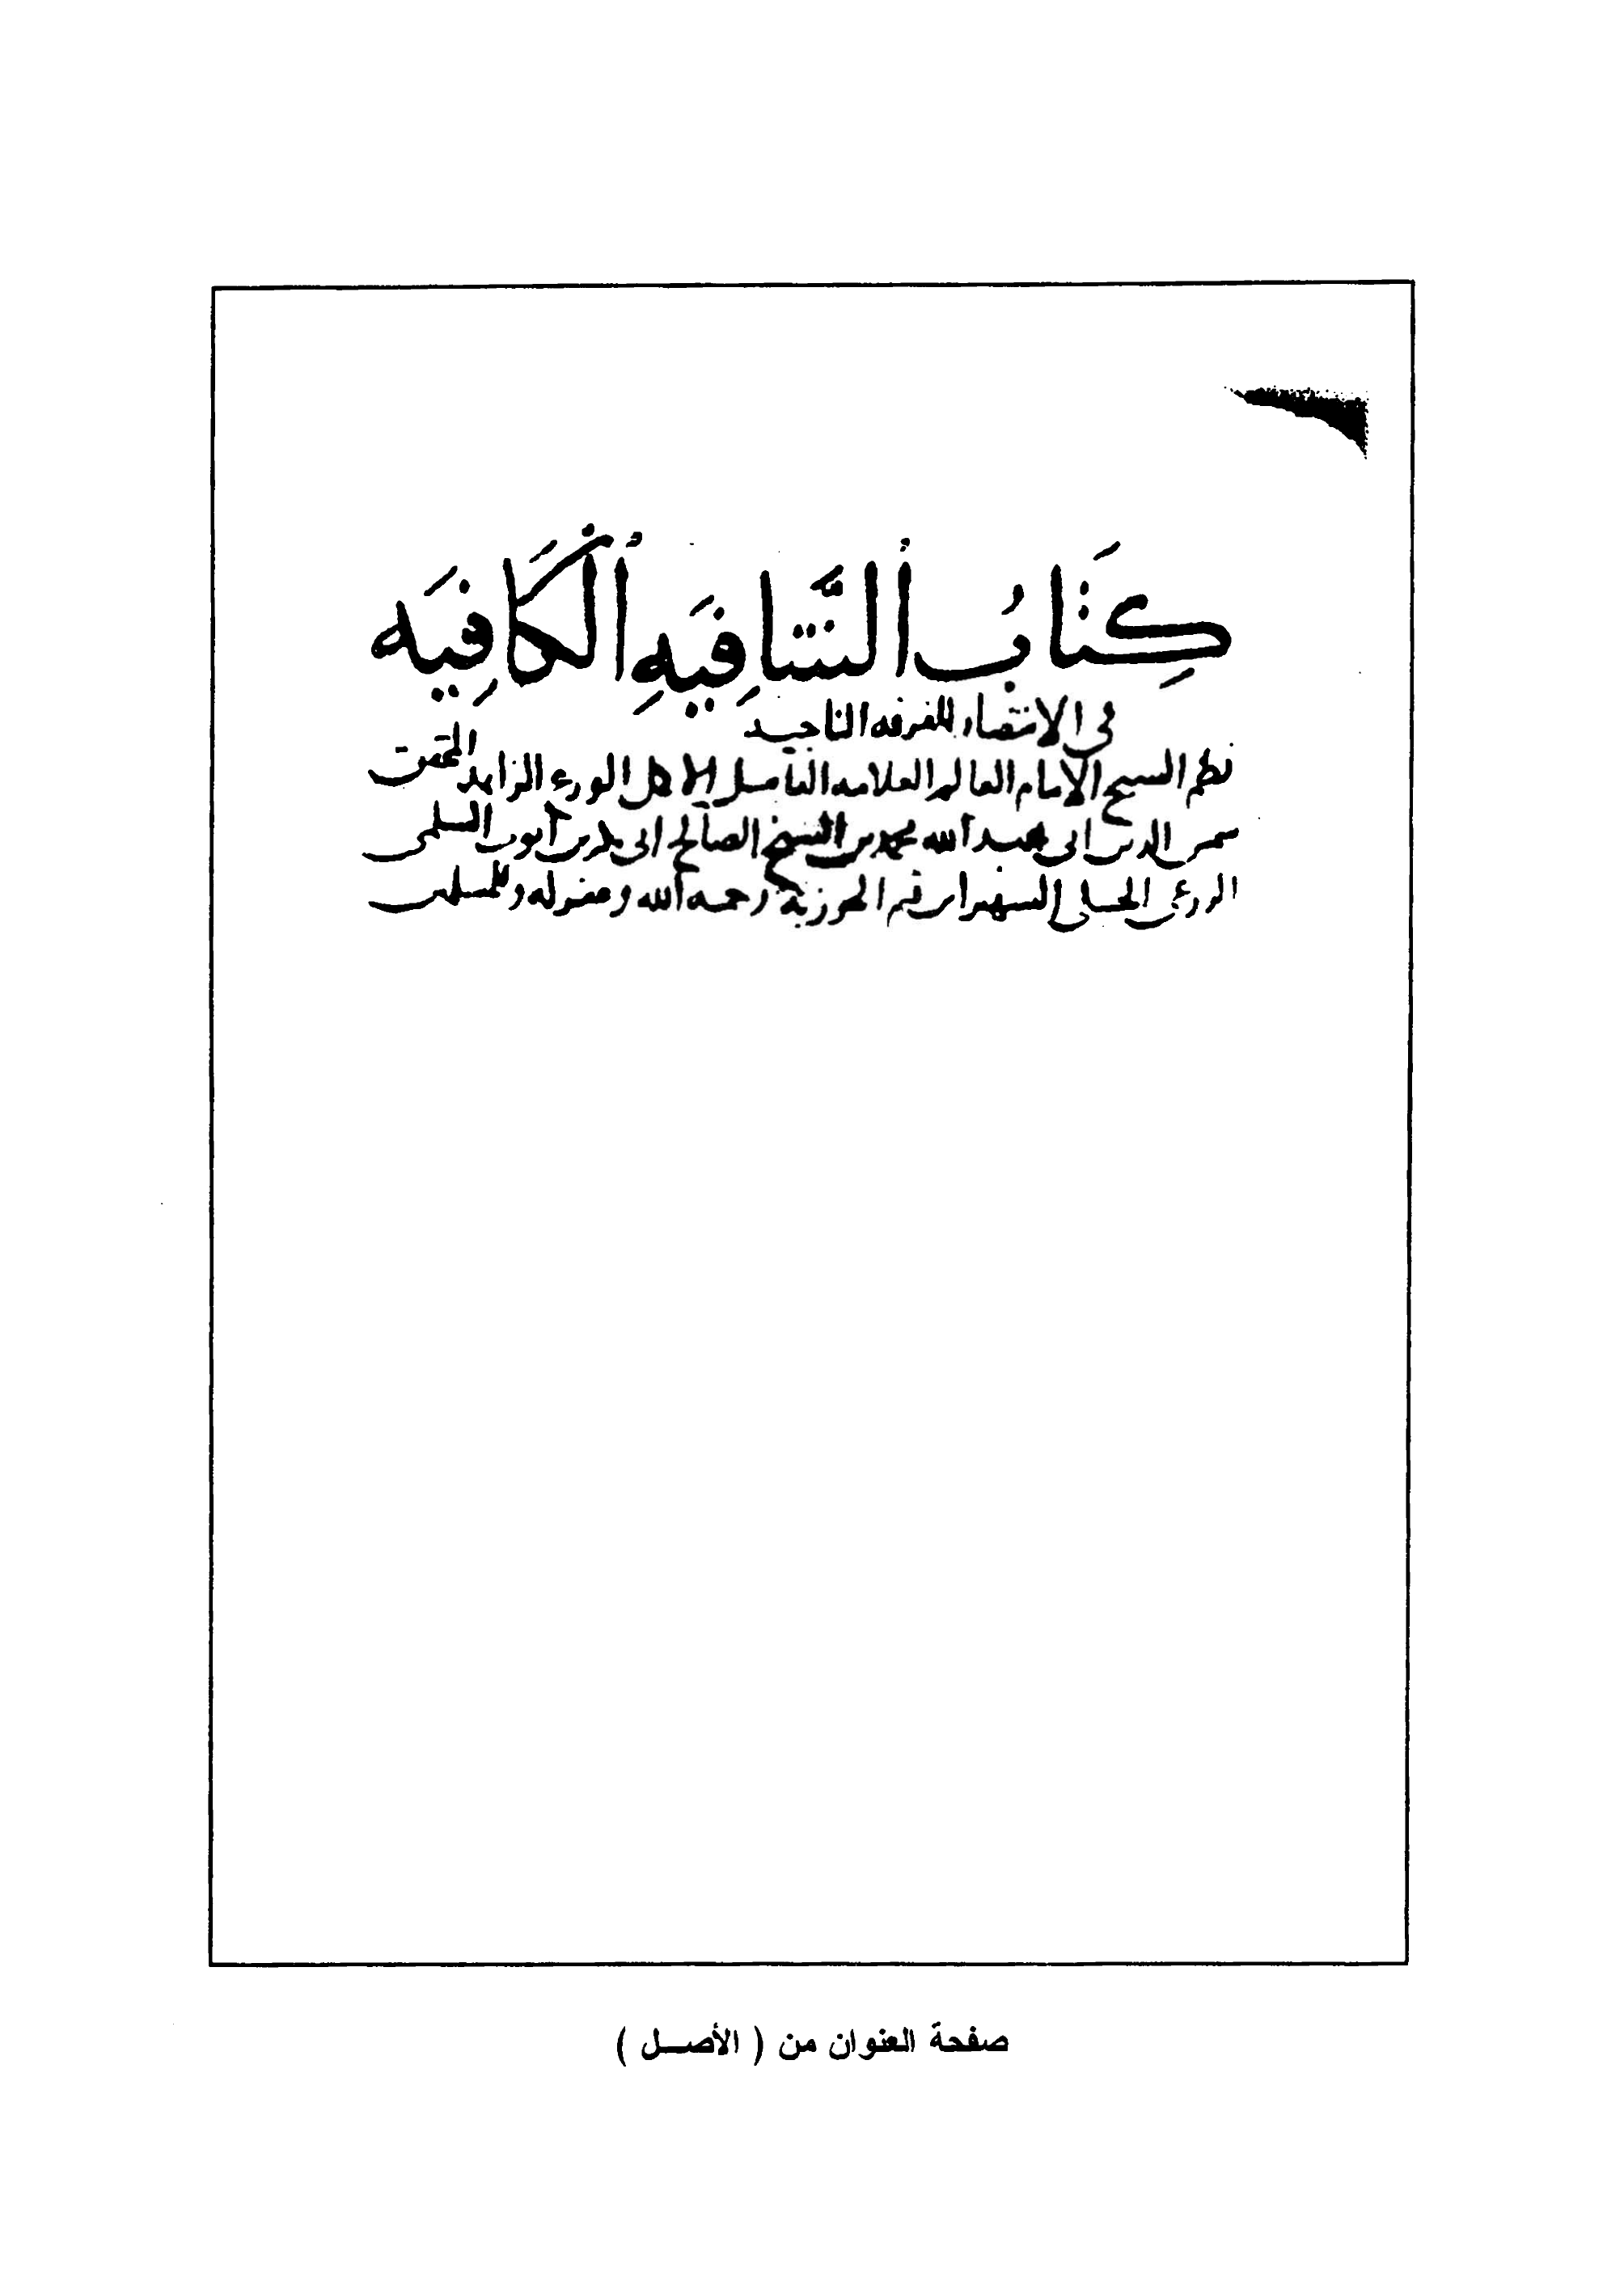 كِتَابُ الشَّافِيَهِ الكَافِيَه
في الانتصار للفرقه الناجيه
نظم الشيخ الامام العالم العلامه الفاضل الاكمل الورع الزاهد المحقق
شمس الدين ابي عبد الله محمد بن الشيخ الصالح ابي بكر بن أيوب
الحنبلي الشهير بابن قيم الجوزية رحمه الله وغفر له وللمسلمين
صفحة العنوان من ( الأصــل )